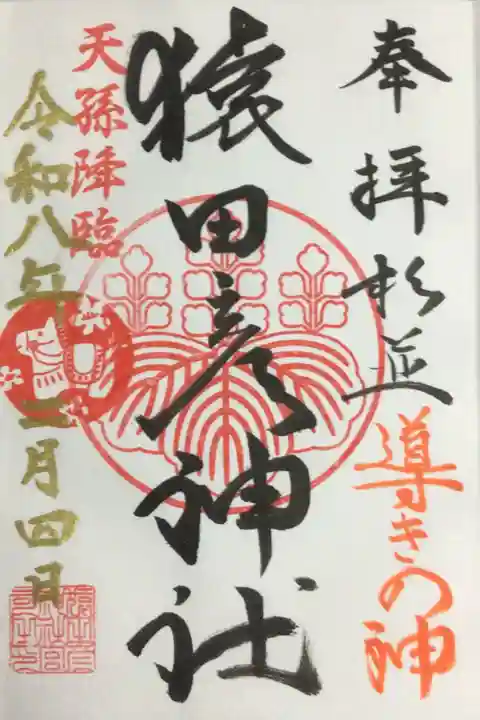 奉拝杉並
導きの神
猿田彦神社
天孫降臨
令和八年二月四日